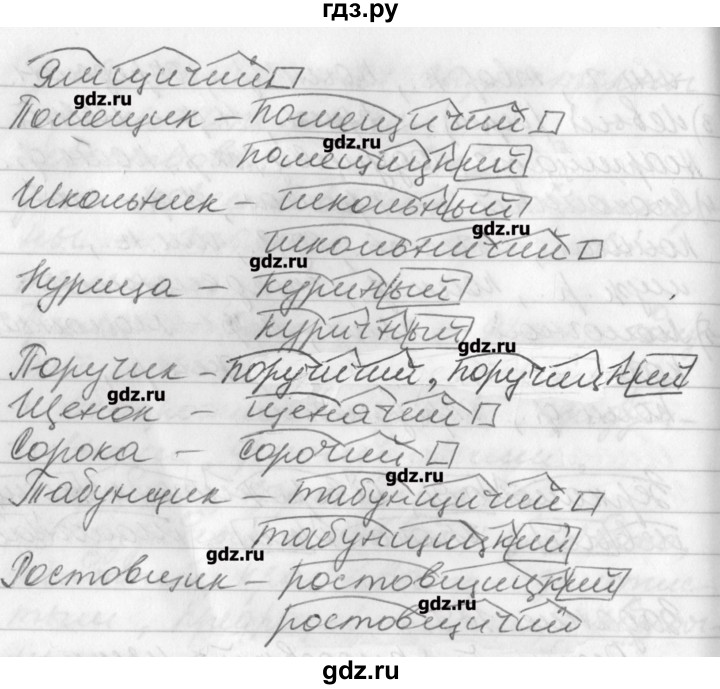 гдз.ру
ямщичий
gdz.ru
Помещик – помещичий
gdz.ru
помещицкий
Школьник – школьный
gdz.ru
школьничий
gdz.ru
Курица – куриный
куричный
gdz.ru
Поручик – поручичий, поручицкий
gdz.ru
Щенок – щенячий
gdz.ru
Сорока – сорочий
gdz.ru
Табунщик – табунщичий
табунщицкий
gdz.ru
Ростовщик – ростовщицкий
gdz.ru
ростовщичий
gdz.ru